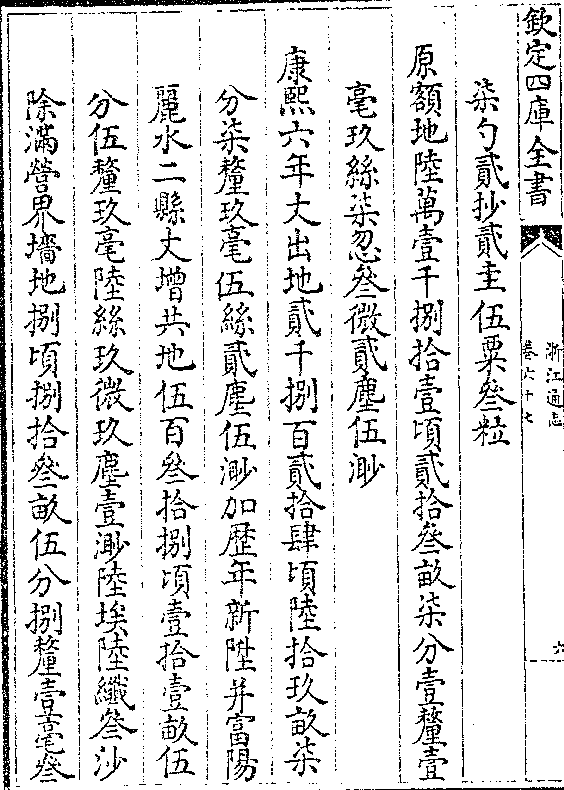 欽定四庫全書
浙江通志
卷六十七
六
柒勺貳抄貳圭伍粟叄粒
原額地陸萬壹千捌拾壹頃貳拾叄畝柒分壹釐壹
毫玖絲柒忽叄微貳塵伍渺
康熙六年丈出地貳千捌百貳拾肆頃陸拾玖畝柒
分柒釐玖毫伍絲貳塵伍渺加歷年新陞并富陽
麗水二縣丈增共地伍百叄拾捌頃壹拾壹畝伍
分伍釐玖毫陸絲玖微玖塵壹渺陸埃陸纖叄沙
除滿營界墻地捌頃捌拾叄畝伍分捌釐壹毫叄